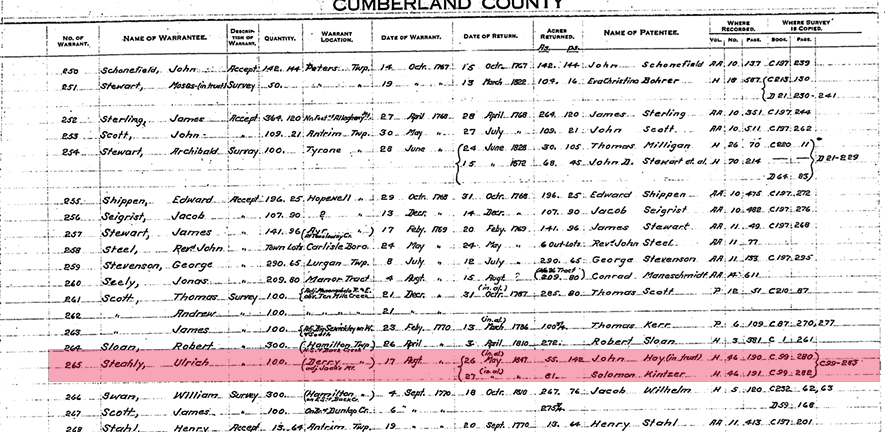 CUMBERLAND COUNTY
NO. OF WARRANT. NAME OF WARRANTEE. DESCRIPTION OF WARRANT. QUANTITY. WARRANT LOCATION. DATE OF WARRANT. DATE OF RETURN. ACRES RETURNED. NAME OF PATENTEE. WHERE RECORDED. WHERE SURVEY IS COPIED.
As. ps. VOL. NO. PAGE. BOOK. PAGE.
250 Schonefield, John Accept 142. 144 Peters Twp. 14 Octr. 1767 15 Octr. 1767 142. 144 John Schonefield AA 10 137 C197 239
251 Stewart, Moses (in trust) Survey 50. " 19 " " 13 March 1822 104. 16 Eva Christina Bohrer H 18 587 C213 130
D21 230-241
252 Sterling, James Accept 264. 120 27 April 1768 28 April 1768 264. 120 James Sterling AA 10 351 C197 244
253 Scott, John " 109. 21 Antrim Twp. 30 May " 27 July " 109. 21 John Scott AA 10 511 C197 262
254 Stewart, Archibald Survey 100. Tyrone " 28 June " 24 June 1828 30. 105 Thomas Milligan H 26 70 C220 11
15 " 1872 68. 45 John D. Stewart et. al. H 70 214 D21-229
D64 83
255 Shippen, Edward Accept 196. 25 Hopewell " 29 Octr. 1768 31 Octr. 1768 196. 25 Edward Shippen AA 10 475 C197 272
256 Seigrist, Jacob " 107. 90 ? 13 Decr. " 14 Decr. " 107. 90 Jacob Seigrist AA 10 482 C197 276
257 Stewart, James " 141. 96 17 Feby. 1769 20 Feby. 1769 141. 96 James Stewart AA 11 49 C197 268
258 Steel, Revd. John " Town Lots Carlisle Boro. 24 May " 24 May " 6 Out Lots Revd. John Steel AA 11 77
259 Stevenson, George " 290. 65 Lurgan Twp. 8 July " 12 July " 290. 65 George Stevenson AA 11 133 C197 295
260 Seely, Jonas " 209. 80 Manor Tract 4 Augt. " 15 Augt ? 209. 80 Conrad Maneschmidt AA 14 611
261 Scott, Thomas Survey 100. abv. Ten Mile Creek 21 Decr. " 31 Octr. 1787 285. 80 Thomas Scott P 12 51 C210 87
262 " Andrew " 100. " 21 " "
263 " James " 100. 23 Feby. 1770 13 Mch. 1786 Thomas Kerr P 6 109 C87 270, 277
264 Sloan, Robert " 300. Hamilton Twp. 26 April " 3 April 1810 272. Robert Sloan H 3 381 C1 261
265 Steahly, Ulrich " 100. Derry " adj. Jacks Mt. 17 Augt. " 26 May 1847 55. 142 John Hoy (in trust) H 46 190 C99-280
27 " " 61. Solomon Kintzer H 46 191 C99-282 C99-283
266 Swan, William Survey 300. Hamilton " 4 Sept. 1770 18 Octr. 1810 267. 76 Jacob Wilhelm H 5 120 C232 62, 63
267 Scott, James " 100. On Dunlap Cr. 6 " " D59 168
268 Stahl, Henry Accept 13. 64 Antrim Twp. 19 " " 20 Sept. 1770 13. 64 Henry Stahl AA 11 413 C197 201